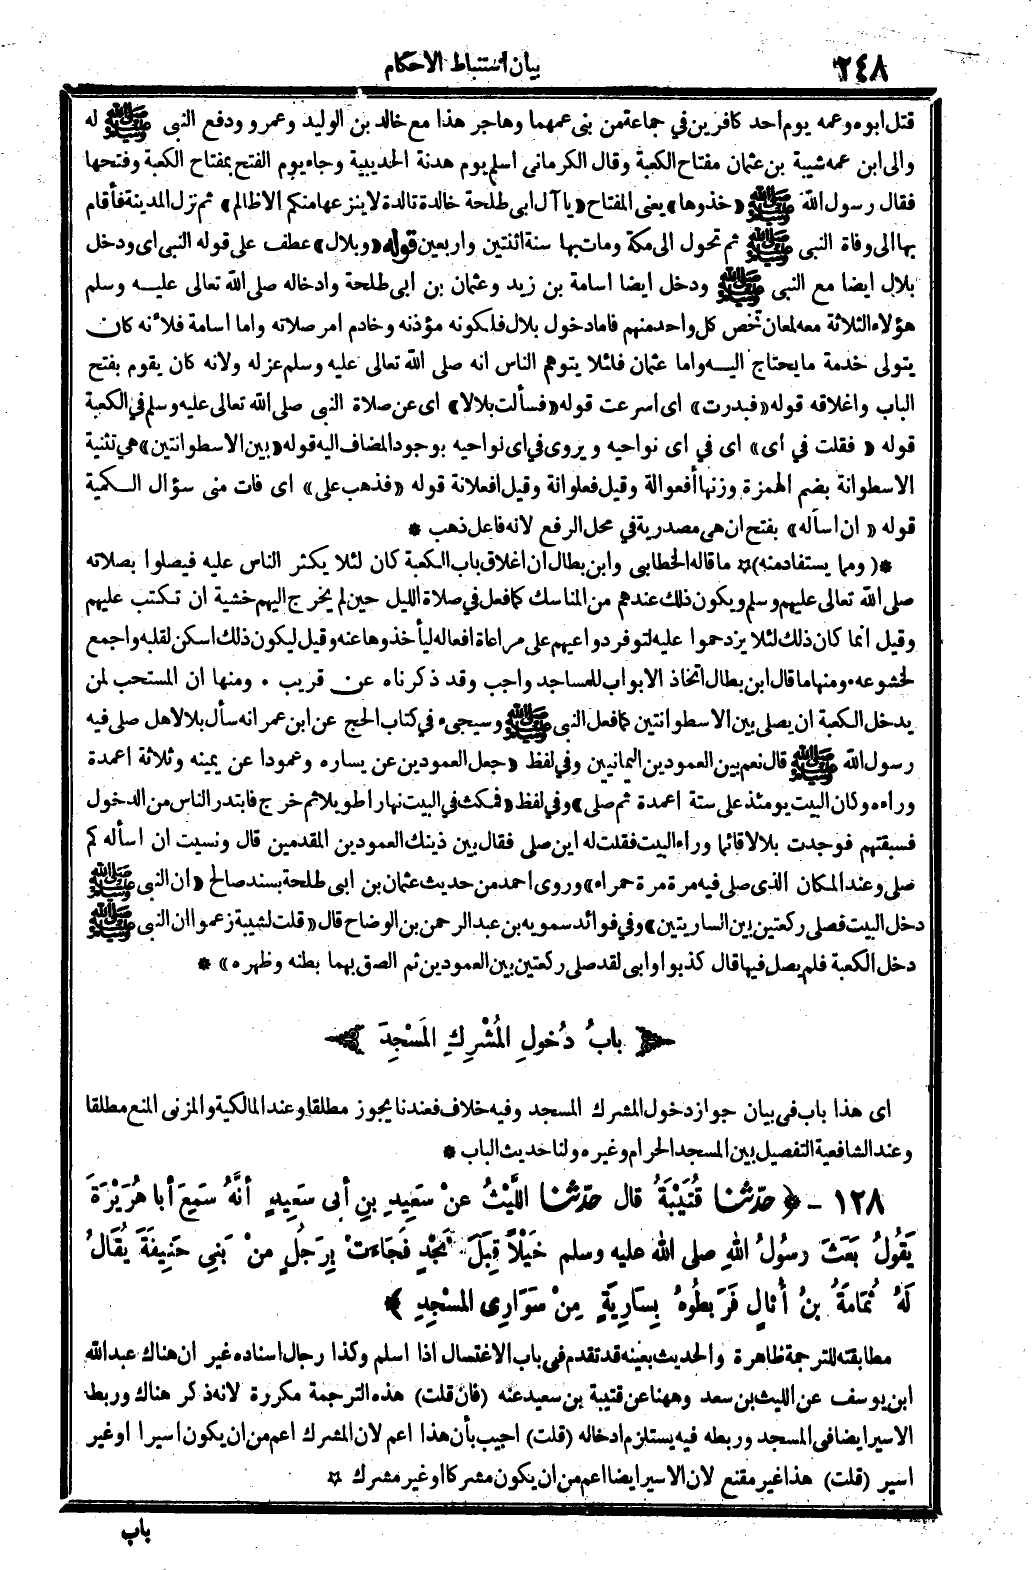 ٢٤٨ بيان استنباط الاحكام
قتل ابوه وعمه يوم احد كافرين في جماعة من بنى عمهما وهاجر هذا مع خالد بن الوليد وعمرو ودفع النبى ﷺ له
والى ابن عمه شيبة بن عثمان مفتاح الكعبة وقال الكرمانى اسلم يوم هدنة الحديبية وجاء يوم الفتح بمفتاح الكعبة وفتحها
فقال رسول الله ﷺ «خذوها» يعنى المفتاح «يا آل ابى طلحة خالدة تالدة لا ينزعها منكم الا ظالم» ثم نزل المدينة فأقام
بها الى وفاة النبى ﷺ ثم تحول الى مكة ومات بها سنة اثنتين واربعين قوله «وبلال» عطف على قوله النبى اى ودخل
بلال ايضا مع النبى ﷺ ودخل ايضا اسامة بن زيد وعثمان بن ابى طلحة وادخاله صلى الله تعالى عليه وسلم
هؤلاء الثلاثة معه لمعان تخص كل واحد منهم فاما دخول بلال فلكونه مؤذنه وخادم امر صلاته واما اسامة فلأنه كان
يتولى خدمة ما يحتاج اليه واما عثمان فلئلا يتوهم الناس انه صلى الله تعالى عليه وسلم عزله ولانه كان يقوم بفتح
الباب واغلاقه قوله «فبدرت» اى اسرعت قوله «فسألت بلالا» اى عن صلاة النبى صلى الله تعالى عليه وسلم في الكعبة
قوله « فقلت في اى» اى في اى نواحيه ويروى في اى نواحيه بوجود المضاف اليه قوله «بين الاسطوانتين» هي تثنية
الاسطوانة بضم الهمزة وزنها أفعوالة وقيل فعلوانة وقيل افعلانة قوله «فذهب على» اى فات منى سؤال الكمية
قوله « ان اسأله» بفتح ان هى مصدرية في محل الرفع لانه فاعل ذهب *
*( ومما يستفاد منه)☆ ما قاله الخطابى وابن بطال ان اغلاق باب الكعبة كان لئلا يكثر الناس عليه فيصلوا بصلاته
صلى الله تعالى عليهم وسلم ويكون ذلك عندهم من المناسك كما فعل في صلاة الليل حين لم يخرج اليهم خشية ان تكتب عليهم
وقيل انما كان ذلك لئلا يزدحموا عليه لتوفر دواعيهم على مراعاة افعاله ليأخذوها عنه وقيل ليكون ذلك اسكن لقلبه واجمع
لخشوعه • ومنها ما قال ابن بطال اتخاذ الابواب للمساجد واجب وقد ذكرناه عن قريب • ومنها ان المستحب لمن
يدخل الكعبة ان يصلى بين الاسطوانتين كما فعل النبى ﷺ وسيجىء في كتاب الحج عن ابن عمر انه سأل بلالا هل صلى فيه
رسول الله ﷺ قال نعم بين العمودين اليمانيين وفي لفظ «جعل العمودين عن يساره وعمودا عن يمينه وثلاثة اعمدة
وراءه وكان البيت يومئذ على ستة اعمدة ثم صلى» وفي لفظ «فمكث في البيت نهارا طويلا ثم خرج فابتدر الناس من الدخول
فسبقتهم فوجدت بلالا قائما وراء البيت فقلت له اين صلى فقال بين ذينك العمودين المقدمين قال ونسيت ان اسأله كم
صلى وعند المكان الذى صلى فيه مرمرة حمراء» وروى احمد من حديث عثمان بن ابى طلحة بسند صالح «ان النبى ﷺ
دخل البيت فصلى ركعتين بين الساريتين» وفي فوائد سمويه بن عبد الرحمن بن الوضاح قال «قلت لشيبة زعموا ان النبى ﷺ
دخل الكعبة فلم يصل فيها قال كذبوا وابى لقد صلى ركعتين بين العمودين ثم الصق بهما بطنه وظهره» *
بابُ دُخُولِ المُشْرِكِ المَسْجِدَ
اى هذا باب فى بيان جواز دخول المشرك المسجد وفيه خلاف فعندنا يجوز مطلقا وعند المالكية والمزنى المنع مطلقا
وعند الشافعية التفصيل بين المسجد الحرام وغيره ولنا حديث الباب *
١٢٨ - ﴿ حدّثنا قُتَيْبَةُ قال حدّثنا اللَّيْثُ عنْ سَعِيدِ بنِ أبى سَعِيدٍ أنَّهُ سَمِعَ أبا هُرَيْرَةَ
يَقُولُ بَعَثَ رسولُ اللهِ صلى الله عليه وسلم خَيْلاً قِبَلَ نَجْدٍ فَجَاءَتْ بِرَجُلٍ مِنْ بَنِي حَنِيفَةَ يُقَالُ
لَهُ ثُمَامَةُ بنُ أُثالٍ فَرَبَطُوهُ بِسارِيَةٍ مِنْ سَوَارِى المسْجِدِ ﴾
مطابقته للترجمة ظاهرة والحديث بعينه قد تقدم فى باب الاغتسال اذا اسلم وكذا رجال اسناده غير ان هناك عبد الله
ابن يوسف عن الليث بن سعد وههنا عن قتيبة بن سعيد عنه (فان قلت) هذه الترجمة مكررة لانه ذكر هناك وربط
الاسير ايضا فى المسجد وربطه فيه يستلزم ادخاله (قلت) اجيب بأن هذا اعم لان المشرك اعم من ان يكون اسيرا او غير
اسير (قلت) هذا غير مقنع لان الاسير ايضا اعم من ان يكون مشركا او غير مشرك ☆
باب